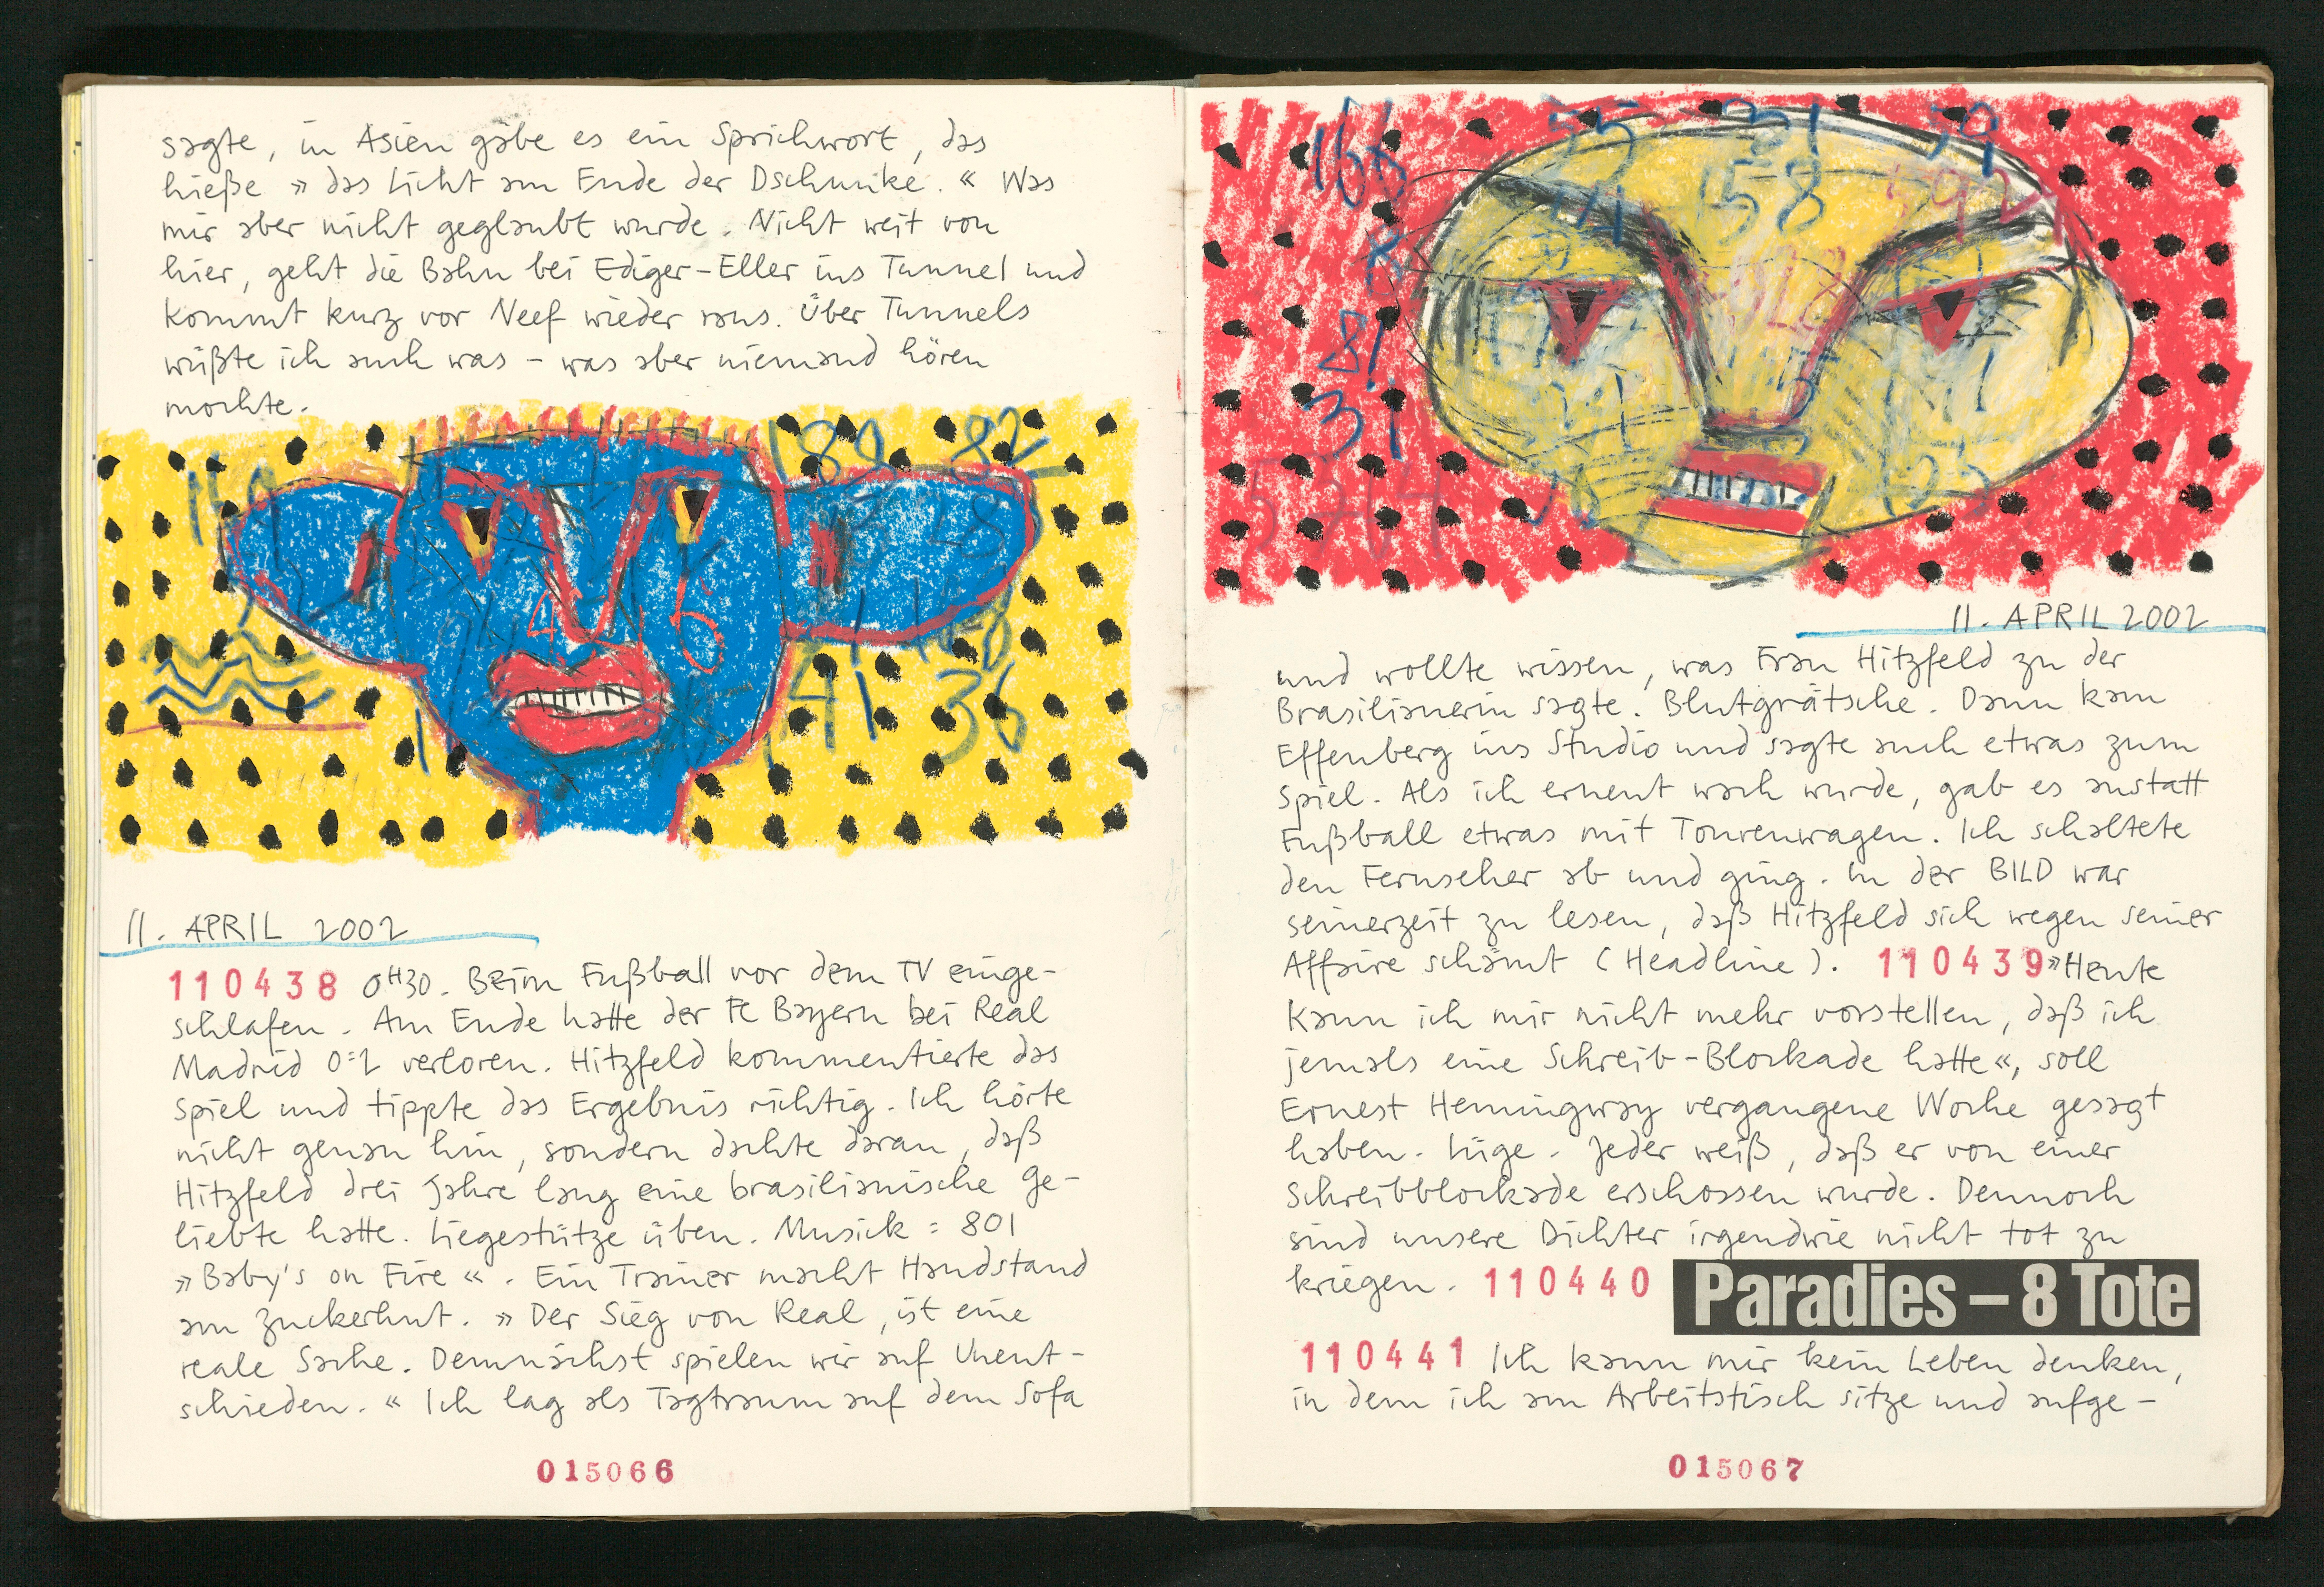 sagte, in Asien gäbe es ein Sprichwort, das
hieße »das Licht am Ende der Dschunke.« Was
mir aber nicht geglaubt wurde. Nicht weit von
hier, geht die Bahn bei Ediger-Eller ins Tunnel und
kommt kurz vor Neef wieder raus. Über Tunnels
wüßte ich auch was – was aber niemand hören
mochte.
189 82
41 36
11. APRIL 2002
110438 0H30. Beim Fußball vor dem TV einge-
schlafen. Am Ende hatte der FC Bayern bei Real
Madrid 0:2 verloren. Hitzfeld kommentierte das
Spiel und tippte das Ergebnis richtig. Ich hörte
nicht genau hin, sondern dachte daran, daß
Hitzfeld drei Jahre lang eine brasilianische Ge-
liebte hatte. Liegestütze üben. Musick: 801
»Baby's on Fire«. Ein Trainer macht Handstand
am Zuckerhut. »Der Sieg von Real, ist eine
reale Sache. Demnächst spielen wir auf Unent-
schieden.« Ich lag als Tagtraum auf dem Sofa
015066
55 31 59
58
81
31
11. APRIL 2002
und wollte wissen, was Frau Hitzfeld zu der
Brasilianerin sagte. Blutgrätsche. Dann kam
Effenberg ins Studio und sagte auch etwas zum
Spiel. Als ich erneut wach wurde, gab es anstatt
Fußball etwas mit Tourenwagen. Ich schaltete
den Fernseher ab und ging. In der BILD war
seinerzeit zu lesen, daß Hitzfeld sich wegen seiner
Affaire schämt (Headline). 110439 »Heute
kann ich mir nicht mehr vorstellen, daß ich
jemals eine Schreib-Blockade hatte«, soll
Ernest Hemingway vergangene Woche gesagt
haben. Lüge. Jeder weiß, daß er von einer
Schreibblockade erschossen wurde. Dennoch
sind unsere Dichter irgendwie nicht tot zu
kriegen. 110440 Paradies – 8 Tote
110441 Ich kann mir kein Leben denken,
in dem ich am Arbeitstisch sitze und aufge-
015067